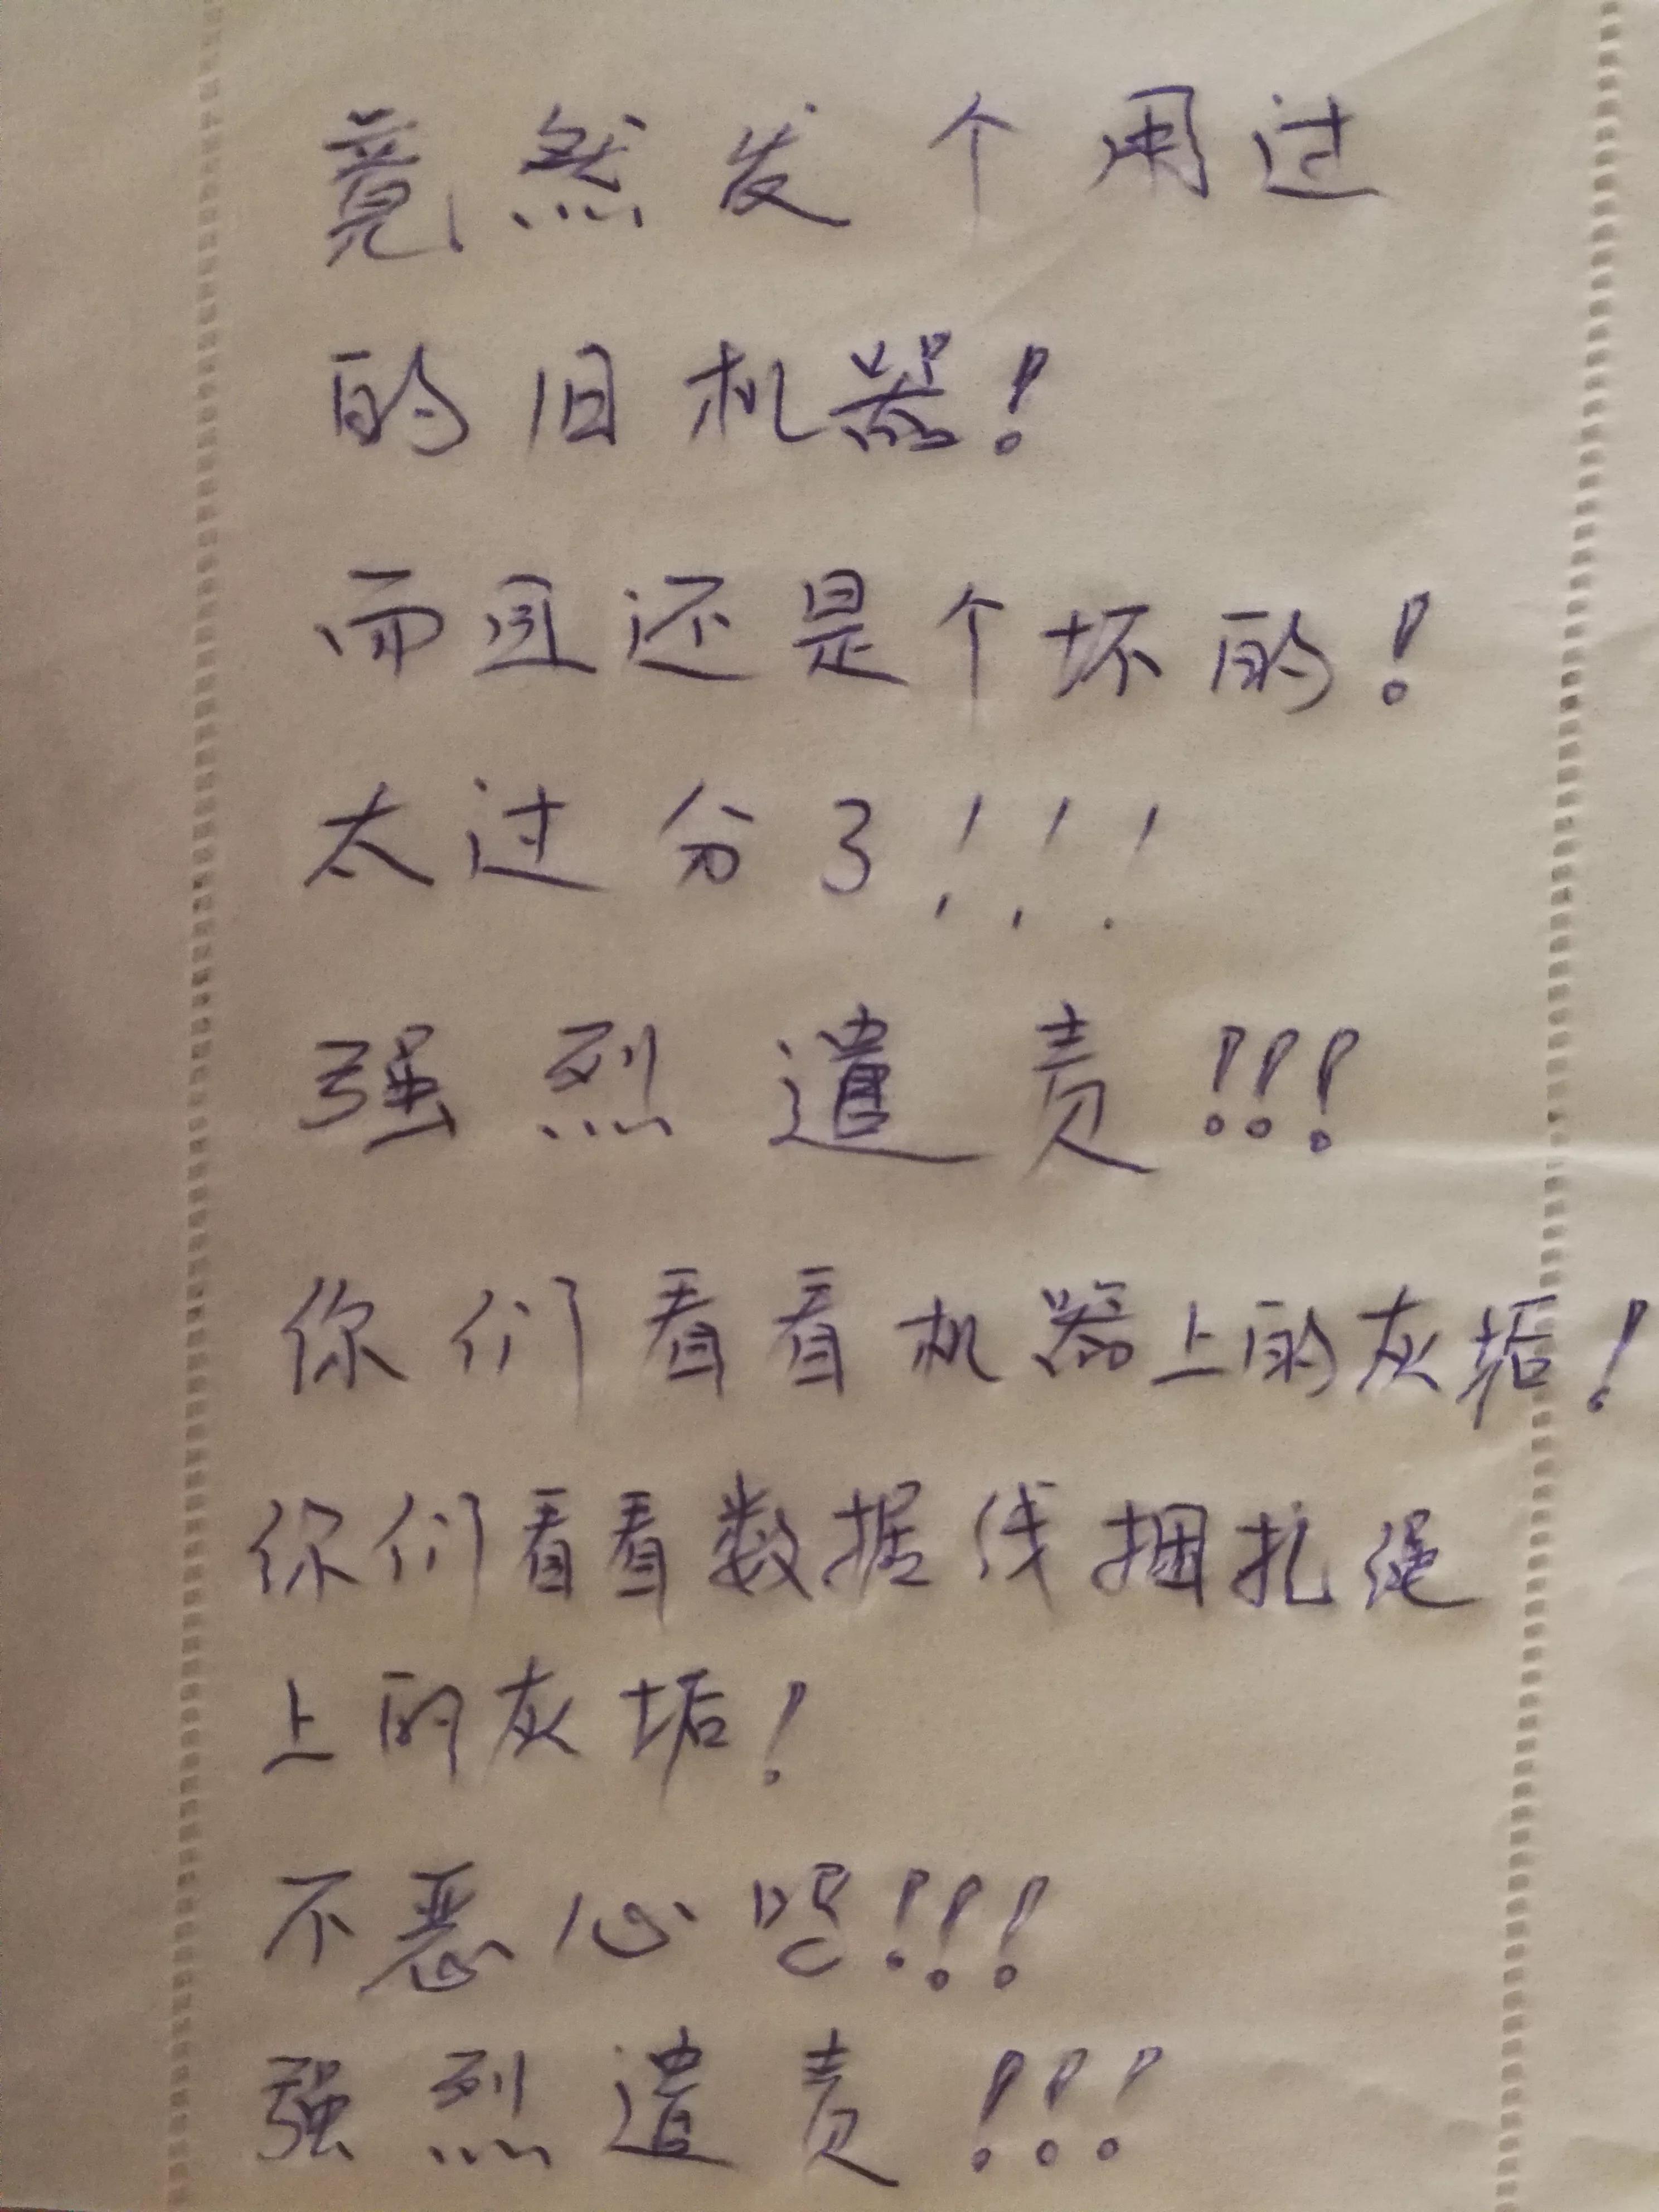 竟然发个用过
的旧机器！
而且还是个坏的！
太过分了！！！
强烈遣责！！！
你们看看机器上的灰垢！
你们看看数据线捆扎绳
上的灰垢！
不恶心吗！！！
强烈遣责！！！